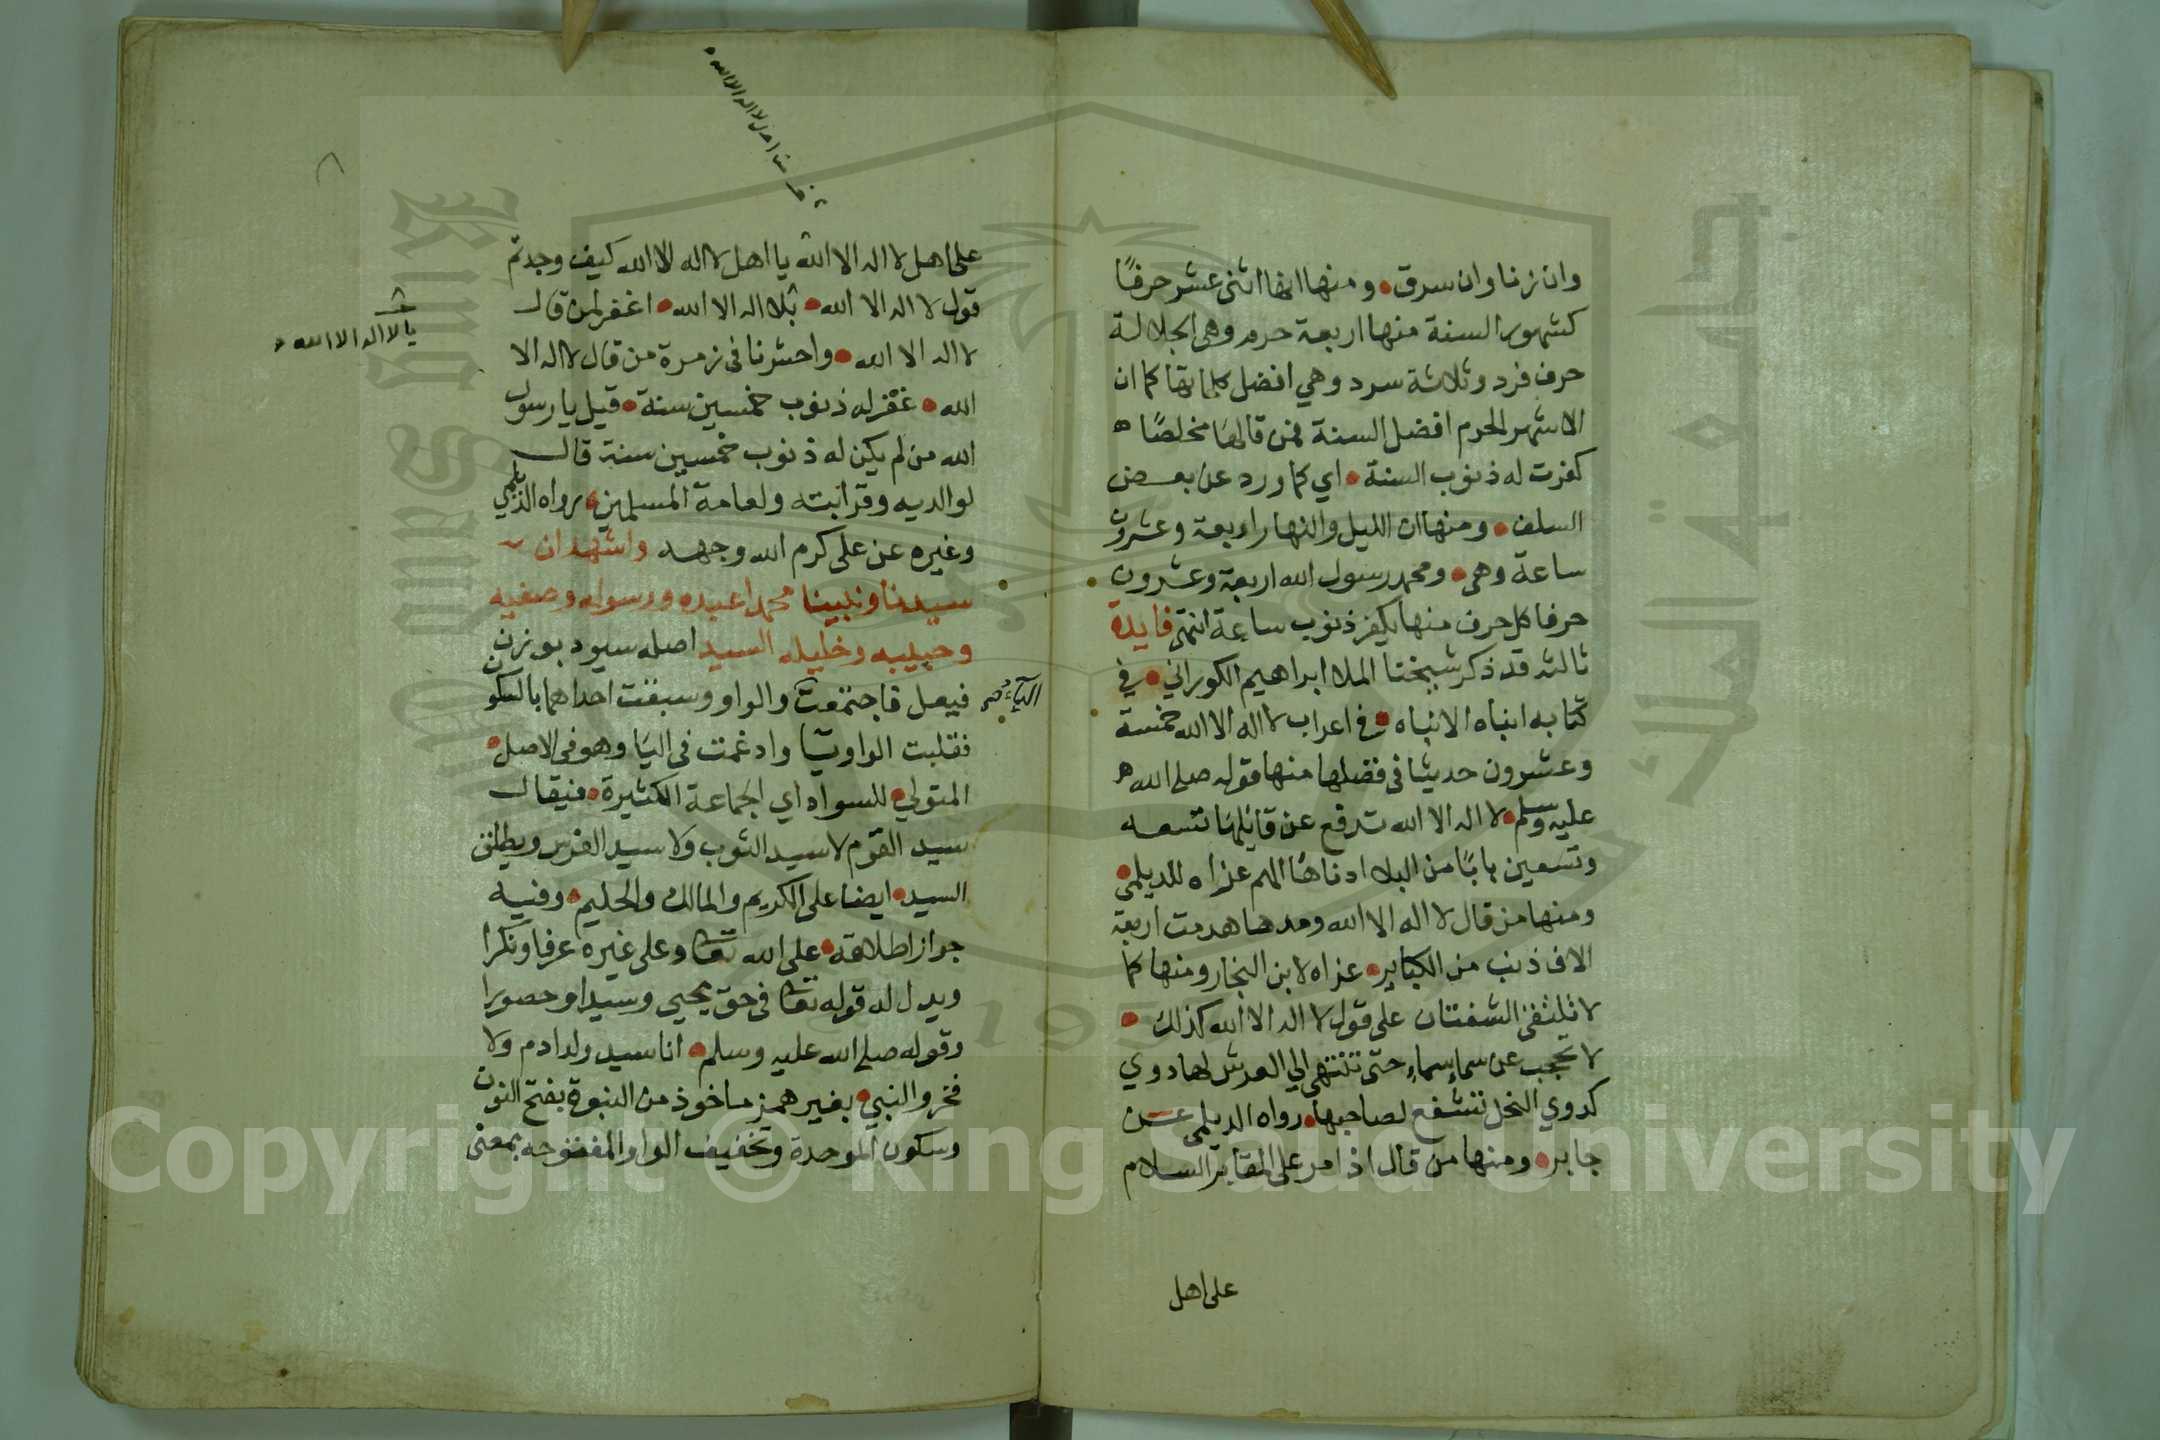 وان زنا وان سرق ومنها انها اثنى عشر حرفًا
كشهور السنة منها اربعة حرم وهي الجلالة
حرف فرد وثلاثة سرد وهي افضل كلماتها كما ان
الاشهر الحرم افضل السنة فمن قالها مخلصًا
كفرت له ذنوب السنة اي كما ورد عن بعض
السلف ومنها ان الليل والنهار اربعة وعشرون
ساعة وهي ومحمد رسول الله اربعة وعشرون
حرفا كل حرف منها يكفر ذنوب ساعة انتهى فايدة
ثالثه قد ذكر شيخنا الملا ابراهيم الكوراني في
كتابه انباه الانباه في اعراب لا اله الا الله خمسة
وعشرون حديثا في فضلها منها قوله صلى الله
عليه وسلم لا اله الا الله تدفع عن قائلها تسعه
وتسعين بابًا من البلاء ادناها الهم عزاه للديلمي
ومنها من قال لا اله الا الله ومدها هدمت اربعة
الاف ذنب من الكباير عزاه لابن النجار ومنها كما
لا تلتقي الشفتان على قول لا اله الا الله كذلك
لا تحجب عن سماء سماء حتى تنتهي الي العرش لها دوي
كدوي النحل تشفع لصاحبها رواه الديلمي عن
جابر ومنها من قال اذا مر على المقابر السلام
على اهل
على اهل لا اله الا الله يا اهل لا اله الا الله كيف وجدتم
قول لا اله الا الله بلا اله الا الله اغفر لمن قال
لا اله الا الله واحشرنا في زمرة من قال لا اله الا
الله غفر له ذنوب خمسين سنة قيل يا رسول
الله من لم يكن له ذنوب خمسين سنة قال
لوالديه وقرابته ولعامة المسلمين رواه الديلمي
وغيره عن على كرم الله وجهه واشهد ان
سيدنا ونبينا محمدا عبده ورسوله وصفيه
وحبيبه وخليله السيد اصله سيود بوزن
فيعل فاجتمعت والواو وسبقت احداهما بالسكون
الياء صح
فقلبت الواو يا وادغمت في اليا وهو في الاصل
المتولي للسواد اي الجماعة الكثيرة فيقال
سيد القوم لا سيد الثوب ولا سيد الفرس ويطلق
السيد ايضا على الكريم والمالك والحليم وفيه
جواز اطلاقه على الله تعا وعلى غيره عرفا ونكرا
ويدل له قوله تعا في حق يحيى وسيدا وحصورا
وقوله صلى الله عليه وسلم انا سيد ولد ادم ولا
فخر والنبي بغير همز ماخوذ من النبوة بفتح النون
وسكون الموحدة وتخفيف الواو المفتوحه بمعنى
يا لا اله الا الله
لا اله الا الله
Copyright © King Saud University
King Saud University
جامعة الملك سعود
195